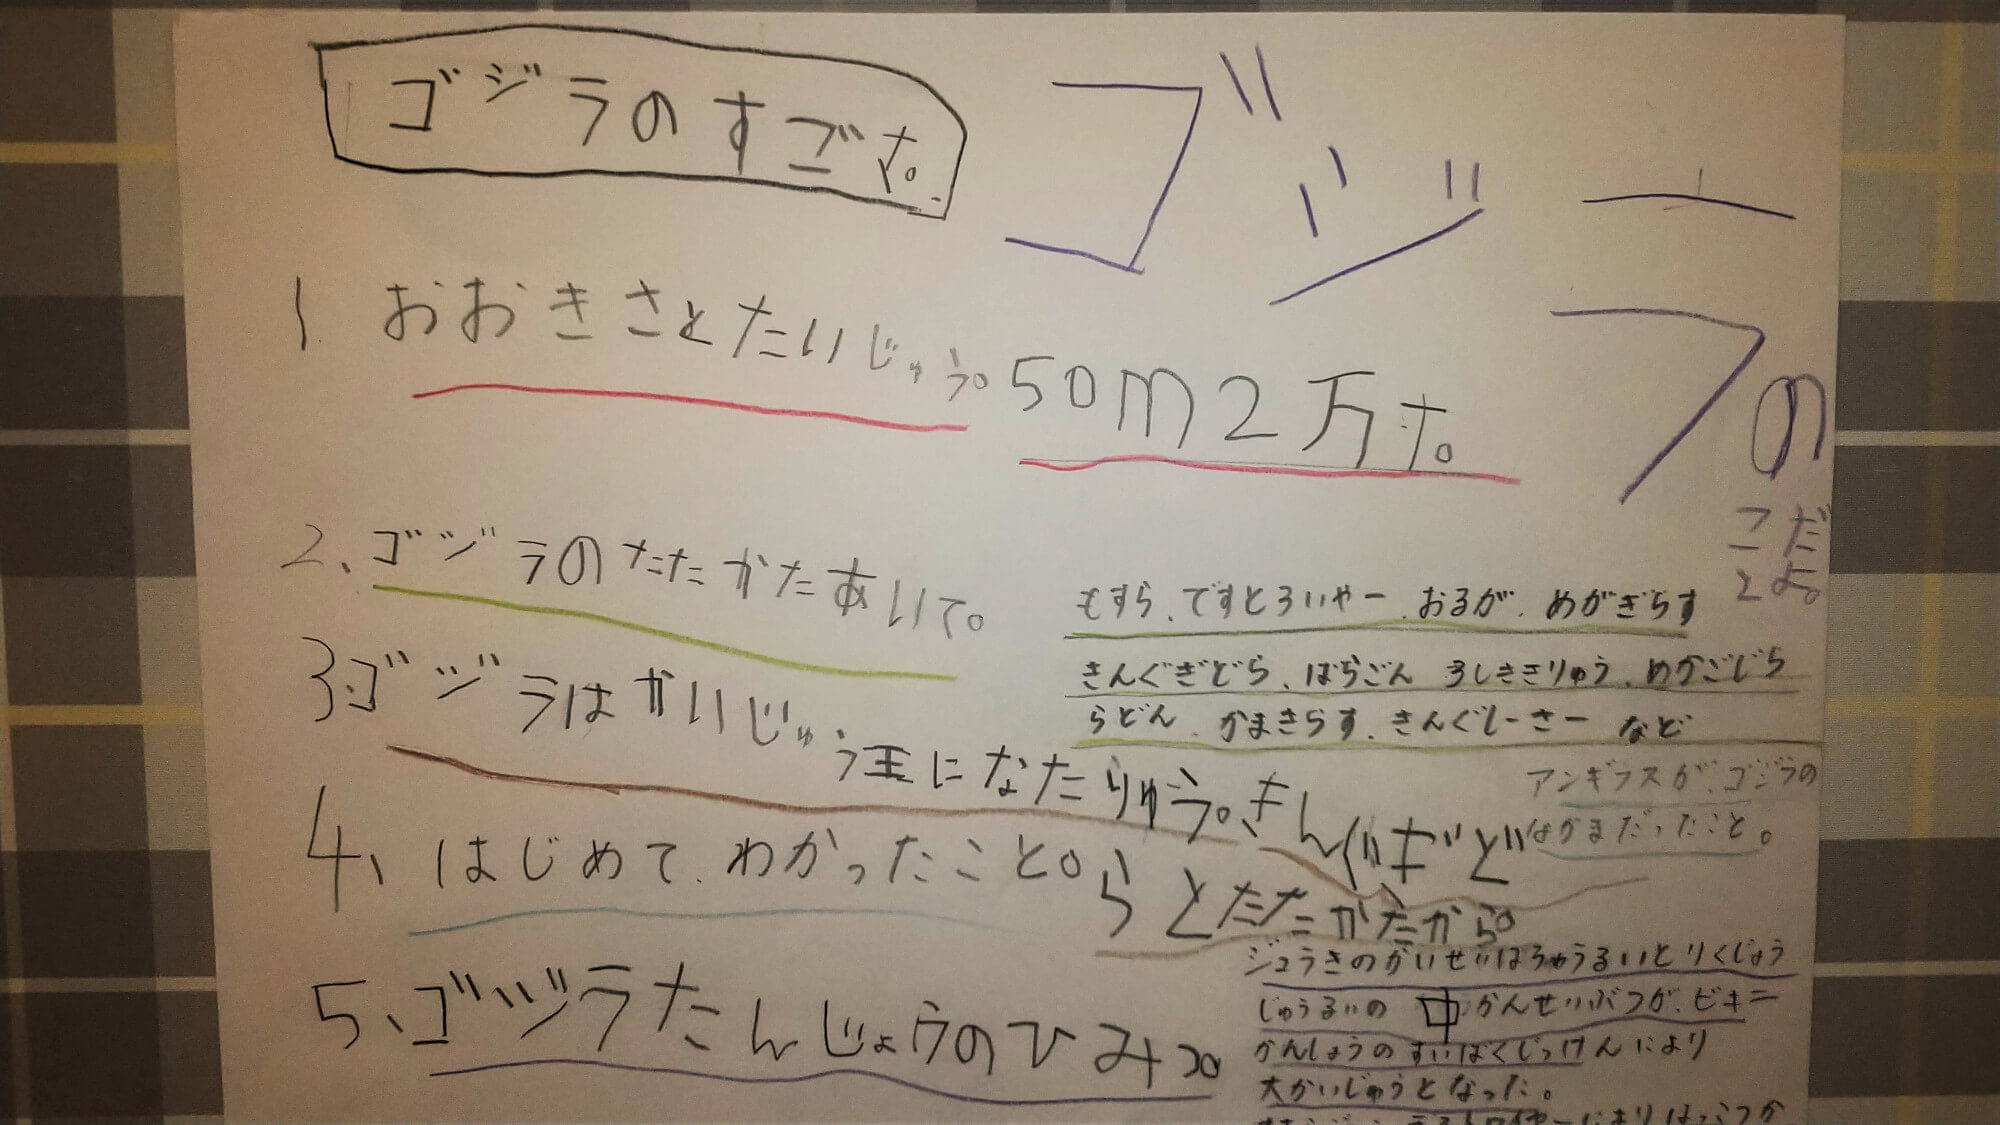 ゴジラのすごさ。
ゴジラの
ことだよ。
1. おおきさとたいじゅう。
50m2万t。
2、ゴジラのたたかたあいて。
もすら、ですとろいやー、おるが、めがぎらす
きんぐぎどら、ばらごん 3しききりゅう、めかごじら
らどん、かまきらす、きんぐしーさー など
3、ゴジラはかいじゅう王になたりゆう。きんぐぎど
らとたたかたから。
4、はじめて、わかったこと。
アンギラスが、ゴジラの
なかまだったこと。
5、ゴジラたんじょうのひみつ。
ジュうきのかいせいはちゅうるいとりくじょう
じゅうるいの 中かんせいぶつが、ビキニ
かんしょうのすいばくじっけんにより
大かいじゅうとなった。